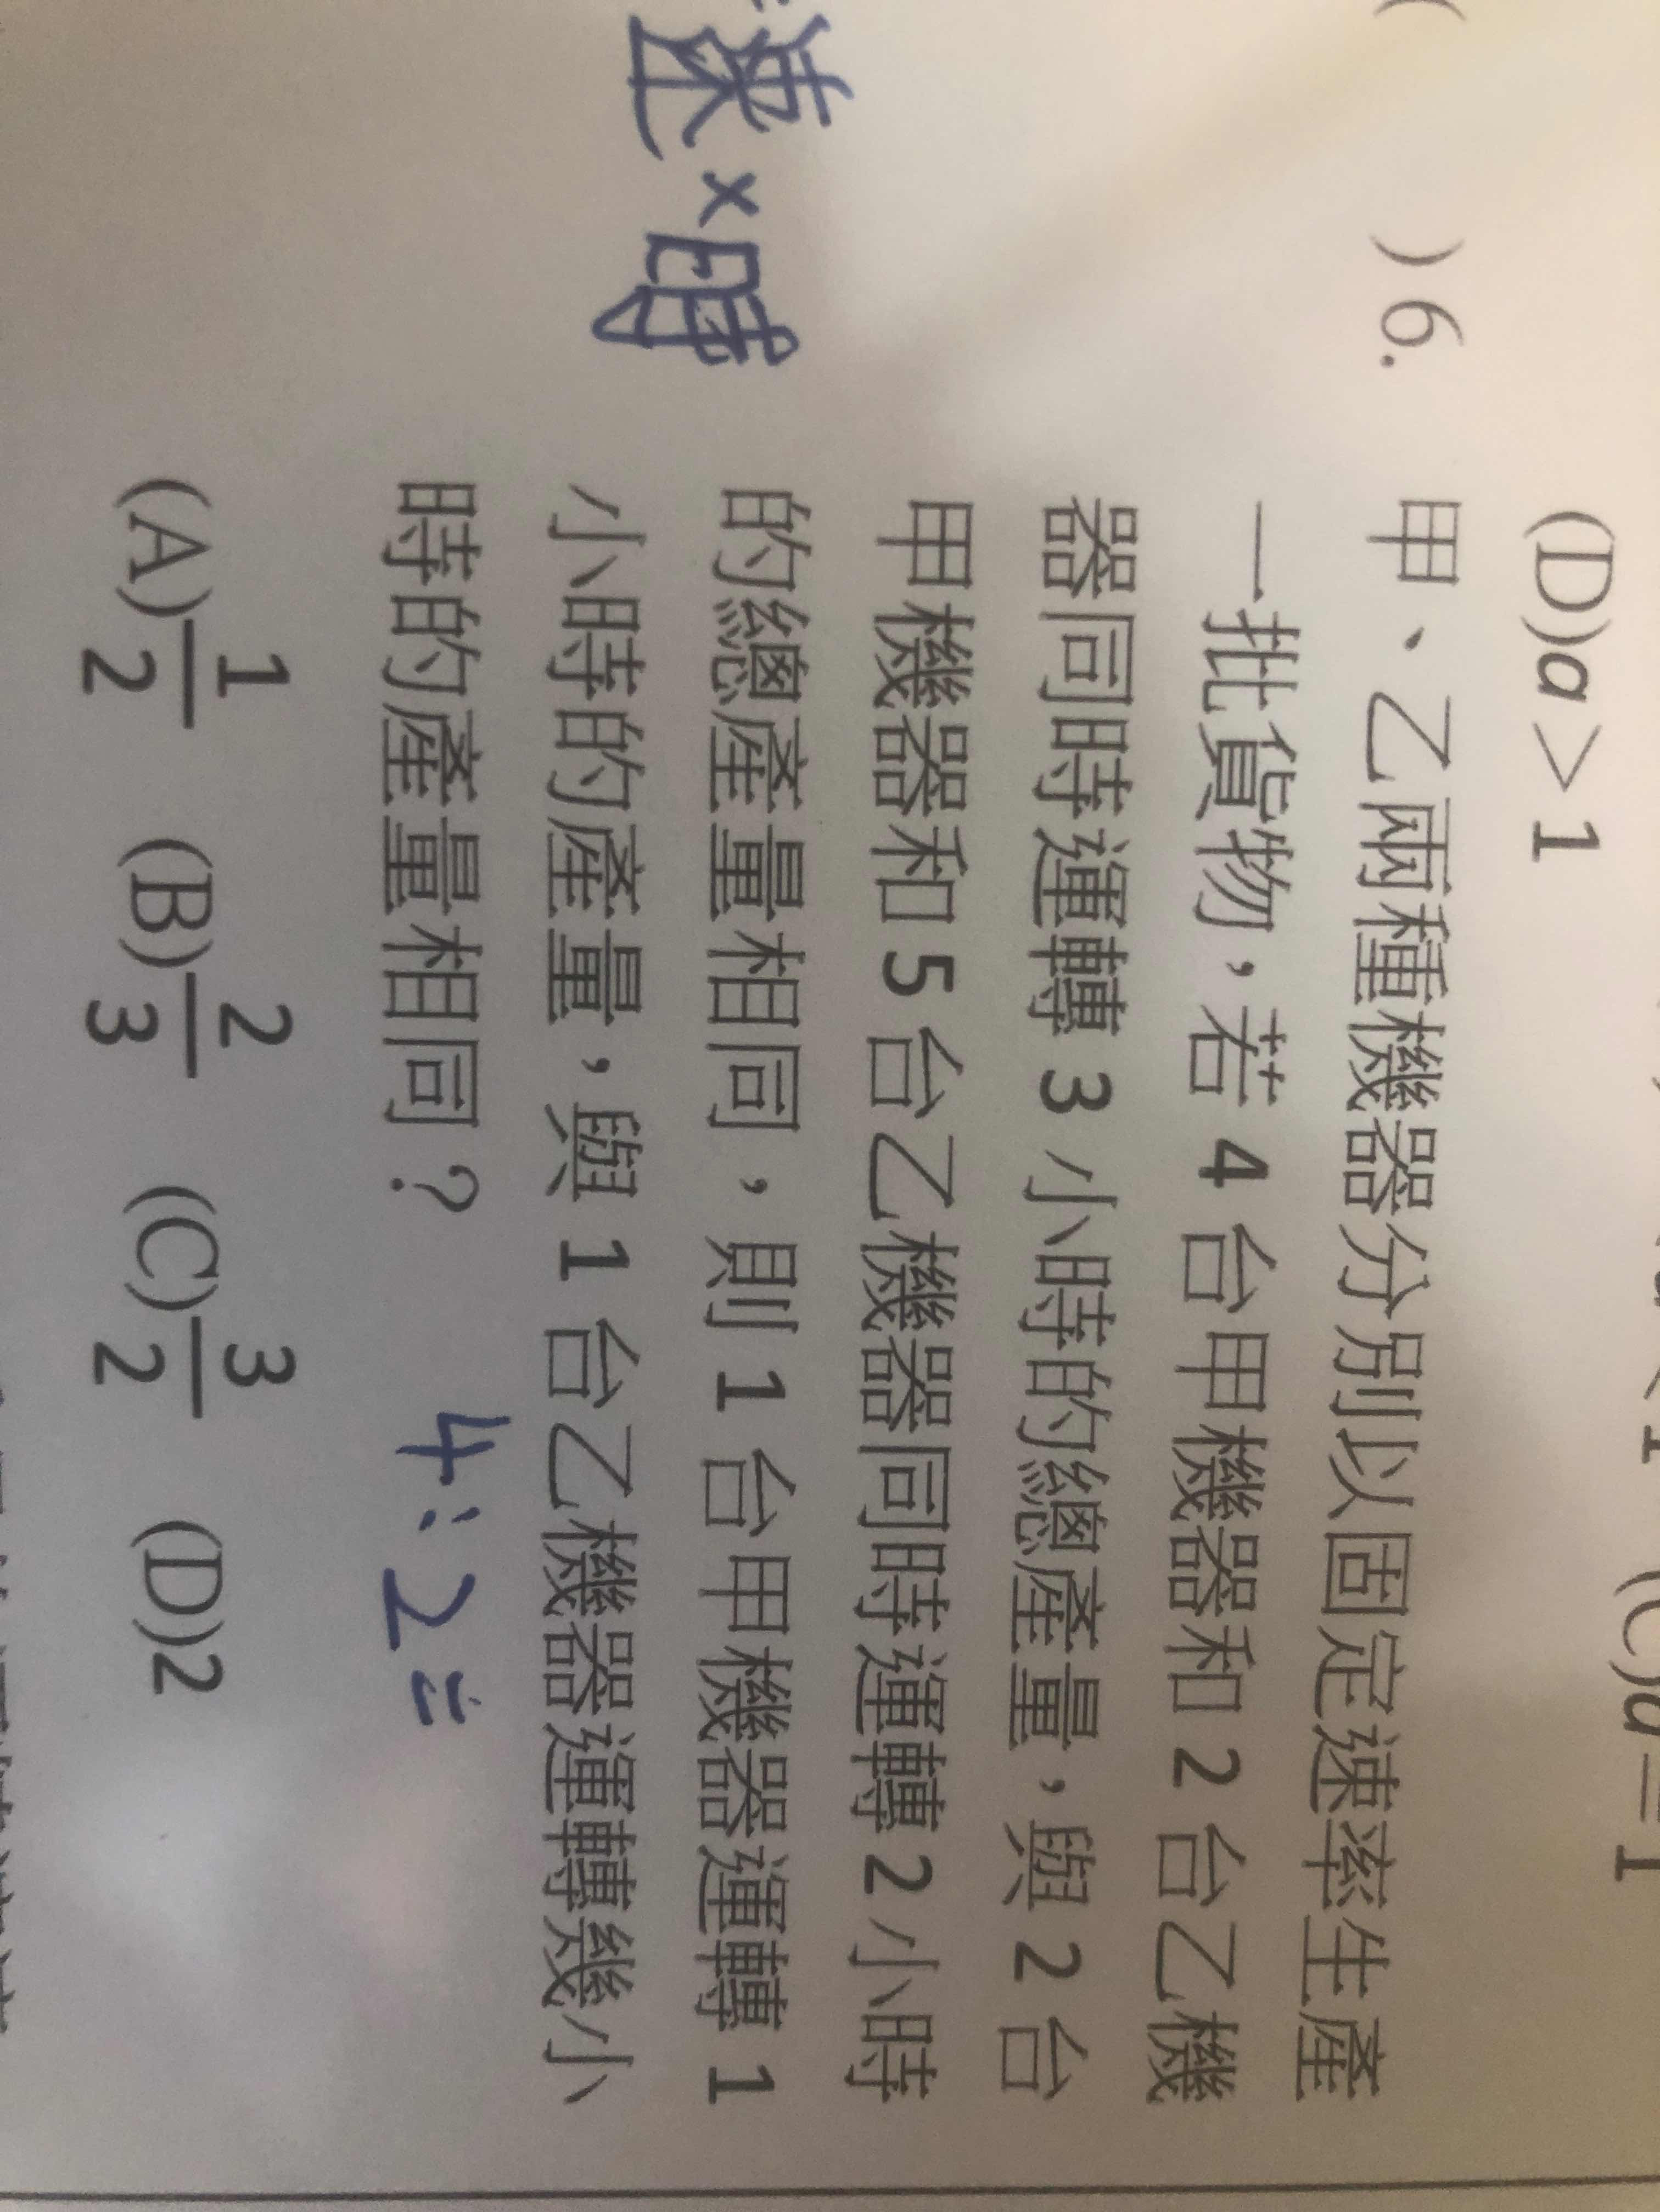 (C)a=1
(D)a>1
( )6. 甲、乙兩種機器分別以固定速率生產
一批貨物，若 4 台甲機器和 2 台乙機
器同時運轉 3 小時的總產量，與 2 台
甲機器和 5 台乙機器同時運轉 2 小時
的總產量相同，則 1 台甲機器運轉 1
小時的產量，與 1 台乙機器運轉幾小
時的產量相同？
4:2=
(A)1/2 (B)2/3 (C)3/2 (D)2
速×時